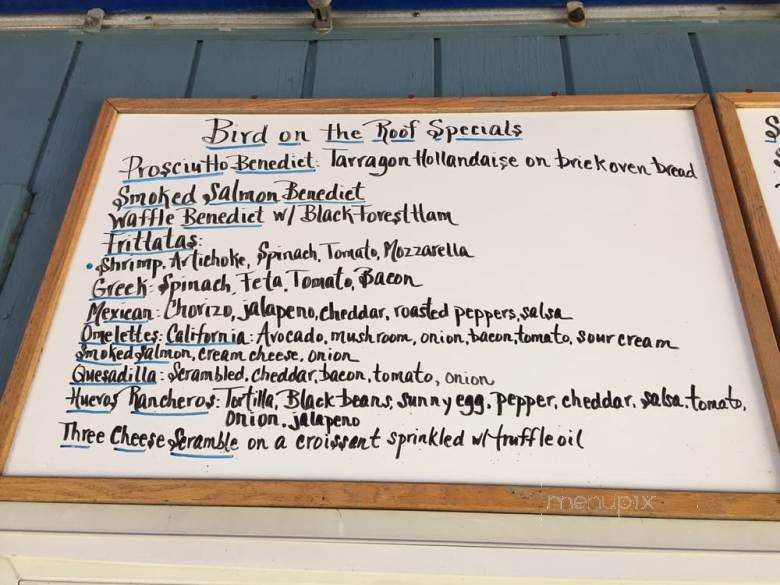 Bird on the Roof Specials
Prosciutto Benedict: Tarragon Hollandaise on brick oven bread
Smoked Salmon Benedict
Waffle Benedict w/ Black Forest Ham
Frittatas:
• Shrimp, Artichoke, Spinach, Tomato, Mozzarella
Greek: Spinach, Feta, Tomato, Bacon
Mexican: Chorizo, jalapeno, cheddar, roasted peppers, salsa
Omelettes: California: Avocado, mushroom, onion, bacon, tomato, sour cream
Smoked Salmon, cream cheese, onion
Quesadilla: Scrambled, cheddar, bacon, tomato, onion
Huevos Rancheros: Tortilla, Black beans, sunny egg, pepper, cheddar, salsa, tomato,
Onion, jalapeno
Three Cheese Scramble on a croissant sprinkled w/ truffle oil
menupix